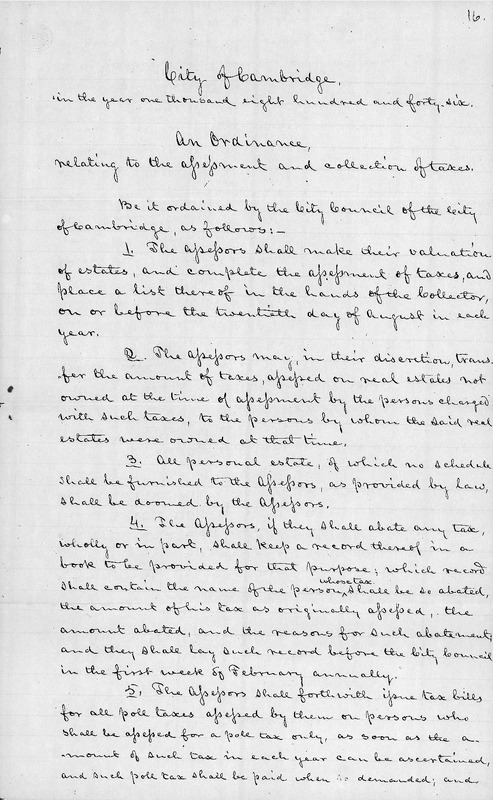 16.
City of Cambridge.
in the year one thousand eight hundred and forty-six.
An Ordinance,
relating to the assessment and collection of taxes.
Be it ordained by the City Council of the City
of Cambridge, as follows:—
1. The Assessors shall make their valuation
of estates, and complete the assessment of taxes, and
place a list thereof in the hands of the Collector,
on or before the twentieth day of August in each
year.
2. The Assessors may, in their discretion, trans-
fer the amount of taxes, assessed on real estates not
owned at the time of assessment by the persons charged
with such taxes, to the persons by whom the said real
estates were owned at that time.
3. All personal estate, of which no schedule
shall be furnished to the Assessors, as provided by law,
shall be doomed by the Assessors.
4. The Assessors, if they shall abate any tax,
wholly or in part, shall keep a record thereof in a
book to be provided for that purpose; which record
shall contain the name of the person whose tax shall be so abated,
the amount of his tax as originally assessed, the
amount abated, and the reasons for such abatement;
and they shall lay such record before the City Council
in the first week of February annually.
5. The Assessors shall forthwith issue tax bills
for all poll taxes assessed by them on persons who
shall be assessed for a poll tax only, as soon as the a-
mount of such tax in each year can be ascertained,
and such poll tax shall be paid when demanded; and